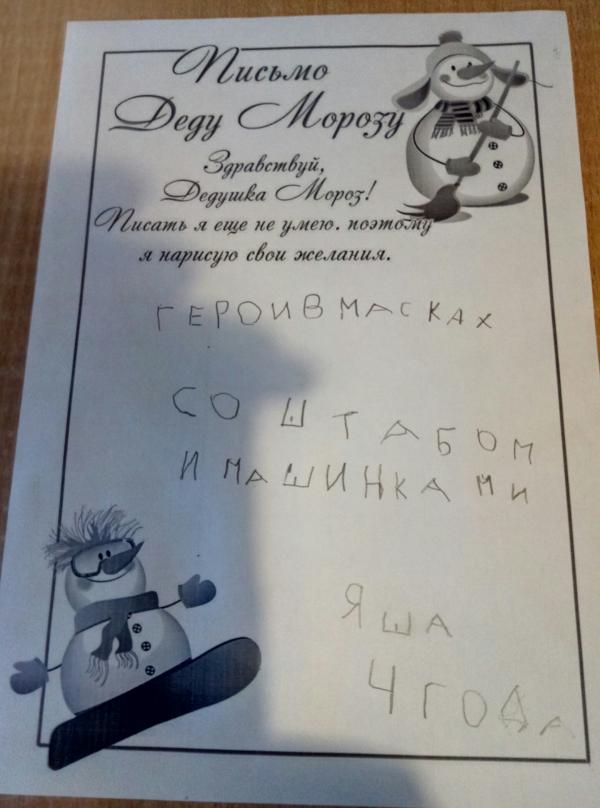 Письмо
Деду Морозу
Здравствуй,
Дедушка Мороз!
Писать я еще не умею. поэтому
я нарисую свои желания.
ГЕРОИВМАСКАХ
СО ШТАБОМ
И МАШИНКАМИ
ЯША
4 ГОДА